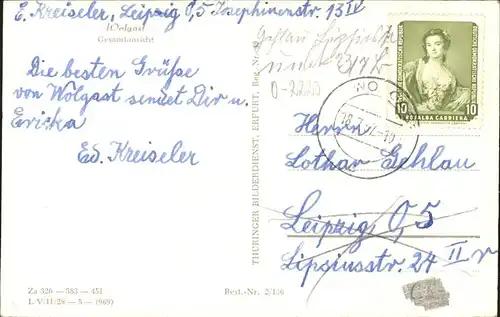 E. Kreiseler, Leipzig O,5 Josephinenstr. 13 IV
Wolgast
Gesamtansicht
Die besten Grüße
von Wolgast sendet Dir u.
Ericka
Ed. Kreiseler
Za 326 — 383 — 451
L V/11/28 — 5 — (969)
Best.-Nr. 2/156
THÜRINGER BILDERDIENST, ERFURT, Reg.-Nr.
0-2220
10
10
ROSALBA CARRIERA
Herrn
Lothar Gehlau
Leipzig O,5
Lipsiusstr. 24 II r